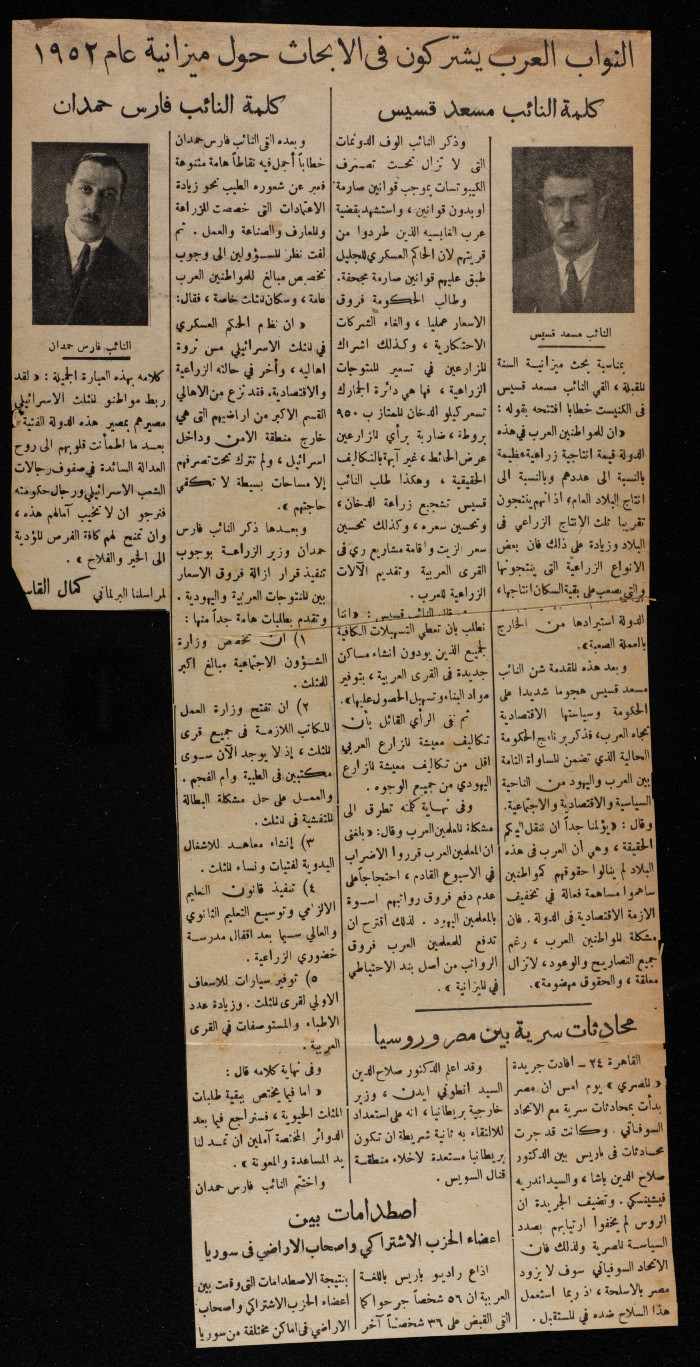 النواب العرب يشتركون فى الابحاث حول ميزانية عام ١٩٥٢
كلمة النائب مسعد قسيس
النائب مسعد قسيس
بمناسبة بحث ميزانية السنة
المقبلة ، القى النائب مسعد قسيس
فى الكنيست خطابا افتتحه بقوله :
« ان للمواطنين العرب في هذه
الدولة قيمة انتاجية زراعية عظيمة
بالنسبة الى عددهم وبالنسبة الى
انتاج البلاد العام، اذ انهم ينتجون
تقريبا ثلث الإنتاج الزراعي فى
البلاد وزيادة على ذلك فان بعض
الانواع الزراعية التى ينتجونها
والتي يصعب على بقية السكان انتاجها،
الدولة استيرادها من الخارج
بالعملة الصعبة».
وبعد هذه المقدمة شن النائب
مسعد قسيس هجوما شديدا على
الحكومة وسياستها الاقتصادية
تجاه العرب، فذكر برنامج الحكومة
الحالية الذي تضمن المساواة التامة
بين العرب واليهود من الناحية
السياسية والاقتصادية والاجتماعية.
وقال : «يؤلمنا جداً ان ننقل اليكم
الحقيقة ، وهي أن العرب فى هذه
البلاد لم ينالوا حقوقهم كمواطنين
ساهموا مساهمة فعالة في تخفيف
الازمة الاقتصادية فى الدولة . فان
مشكلة المواطنين العرب ، رغم
جميع التصاريح والوعود، لا تزال
معلقة ، والحقوق مهضومة».
وذكر النائب الوف الدونمات
التى لا تزال تحت تصرف
الكيبوتسات بموجب قوانين صارمة
او بدون قوانين ، واستشهد بقضية
عرب الغابسيه الذين طردوا من
قريتهم لان الحاكم العسكري للجليل
طبق عليهم قوانين صارمة مجحفة.
وطالب الحكومة فروق
الاسعار عمليا ، والغاء الشركات
الاحتكارية ، وكذلك اشراك
المزارعين في تسعير المنتوجات
الزراعية ، فها هي دائرة الجمارك
تسعر كيلو الدخان الممتاز ب ٩٥٠
بروطة، ضاربة برأي المزارعين
عرض الحائط، غير آبهة بالتكاليف
الحقيقية ، وهكذا طلب النائب
قسيس تشجيع زراعة الدخان،
وتحسين سعره، وكذلك تحسين
سعر الزيت واقامة مشاريع رى فى
القرى العربية وتقديم الآلات
الزراعية للعرب .
قال النائب قسيس : « اننا
نطلب بان تعطى التسهيلات الكافية
لجميع الذين يودون انشاء مساكن
جديدة فى القرى العربية ، بتوفير
مواد البناء وتسهيل الحصول عليها».
ثم نفى الرأي القائل بأن
تكاليف معيشة المزارع العربي
اقل من تكاليف معيشة المزارع
اليهودي من جميع الوجوه .
وفى نهاية كلمته تطرق الى
مشكلة المعلمين العرب وقال: «بلغنى
ان المعلمين العرب قرروا الاضراب
في الاسبوع القادم ، احتجاجاً على
عدم دفع فروق رواتبهم اسوة
بالمعلمين اليهود . لذلك اقترح ان
تدفع للمعلمين العرب فروق
الرواتب من أصل بند الاحتياطي
في الميزانية ».
كلمة النائب فارس حمدان
وبعده القى النائب فارس حمدان
خطاباً أجمل فيه نقاطاً هامة متنوعة
فعبر عن شعوره الطيب نحو زيادة
الاعتمادات التى خصصت للزراعة
وللمعارف والصناعة والعمل . ثم
لفت نظر المسؤولين الى وجوب
تخصيص مبالغ للمواطنين العرب
عامة ، وسكان المثلث خاصة ، فقال:
« ان نظام الحكم العسكري
في المثلث الاسرائيلي مس ثروة
اهاليه ، وأخر في حالته الزراعية
والاقتصادية. فقد نزع من الاهالي
القسم الاكبر من اراضيهم التى هي
خارج منطقة الامن وداخل
اسرائيل ، ولم تترك تحت تصرفهم
إلا مساحات بسيطة لا تكفي
حاجتهم ».
وبعدها ذكر النائب فارس
حمدان وزير الزراعة بوجوب
تنفيذ قرار ازالة فروق الاسعار
بين المنتوجات العربية واليهودية .
وتقدم بطلبات هامة جداً منها :
١) ان تخصص وزارة
الشؤون الاجتماعية مبالغ اكبر
للمثلث .
٢) ان تفتح وزارة العمل
المكاتب اللازمة فى جميع قرى
المثلث ، إذ لا يوجد الآن سوى
مكتبين فى الطيبة وام الفحم .
والعمل على حل مشكلة البطالة
المتفشية فى المثلث .
٣) إنشاء معاهد للاشغال
اليدوية لفتيات ونساء المثلث .
٤) تنفيذ قانون التعليم
الالزامي وتوسيع التعليم الثانوي
والعالي سيما بعد اقفال مدرسة
خضوري الزراعية .
٥) توفير سيارات للاسعاف
الاولي لقرى المثلث . وزيادة عدد
الاطباء والمستوصفات في القرى
العربية .
وفى نهاية كلامه قال :
« اما فيما يختص ببقية طلبات
المثلث الحيوية ، فسنراجع فيها بعد
الدوائر المختصة آملين ان تمد لنا
يد المساعدة والمعونة ».
واختتم النائب فارس حمدان
النائب فارس حمدان
كلامه بهذه العبارة الجميلة : « لقد
ربط مواطنو المثلث الاسرائيلي
مصيرهم بمصير هذه الدولة الفتية
بعد ما اطمأنت قلوبهم الى روح
العدالة السائدة في صفوف رجالات
الشعب الاسرائيلي ورجال حكومته
فنرجو ان لا تخيب آمالهم هذه ،
وان تمنح لهم كافة الفرص المؤدية
الى الخير والفلاح » .
لمراسلنا البرلماني كمال القاسـ
محادثات سرية بين مصر وروسيا
القاهرة ٢٤ – افادت جريدة
« المصري » يوم امس ان مصر
بدأت بمحادثات سرية مع الاتحاد
السوفياتي . وكانت قد جرت
محادثات فى باريس بين الدكتور
صلاح الدين باشا ، والسيد اندريه
فيشينسكي . وتضيف الجريدة ان
الروس لم يخفوا ارتيابهم بصدد
السياسة المصرية ولذلك فان
الاتحاد السوفياتي سوف لا يزود
مصر بالاسلحة، اذ ربما استعمل
هذا السلاح ضده في المستقبل .
وقد اعلم الدكتور صلاح الدين
السيد انطوني ايدن ، وزير
خارجية بريطانيا ، انه على استعداد
للالتقاء به ثانية شريطة ان تكون
بريطانيا مستعدة لاخلاء منطقة
قنال السويس .
اصطدامات بين
اعضاء الحزب الاشتراكي واصحاب الاراضي فى سوريا
اذاع راديو باريس باللغة
العربية ان ٥٦ شخصاً جرحوا كما
القى القبض على ٣٦ شخصاً آخر
بنتيجة الاصطدامات التى وقعت بين
اعضاء الحزب الاشتراكي واصحاب
الاراضي فى اماكن مختلفة من سوريا